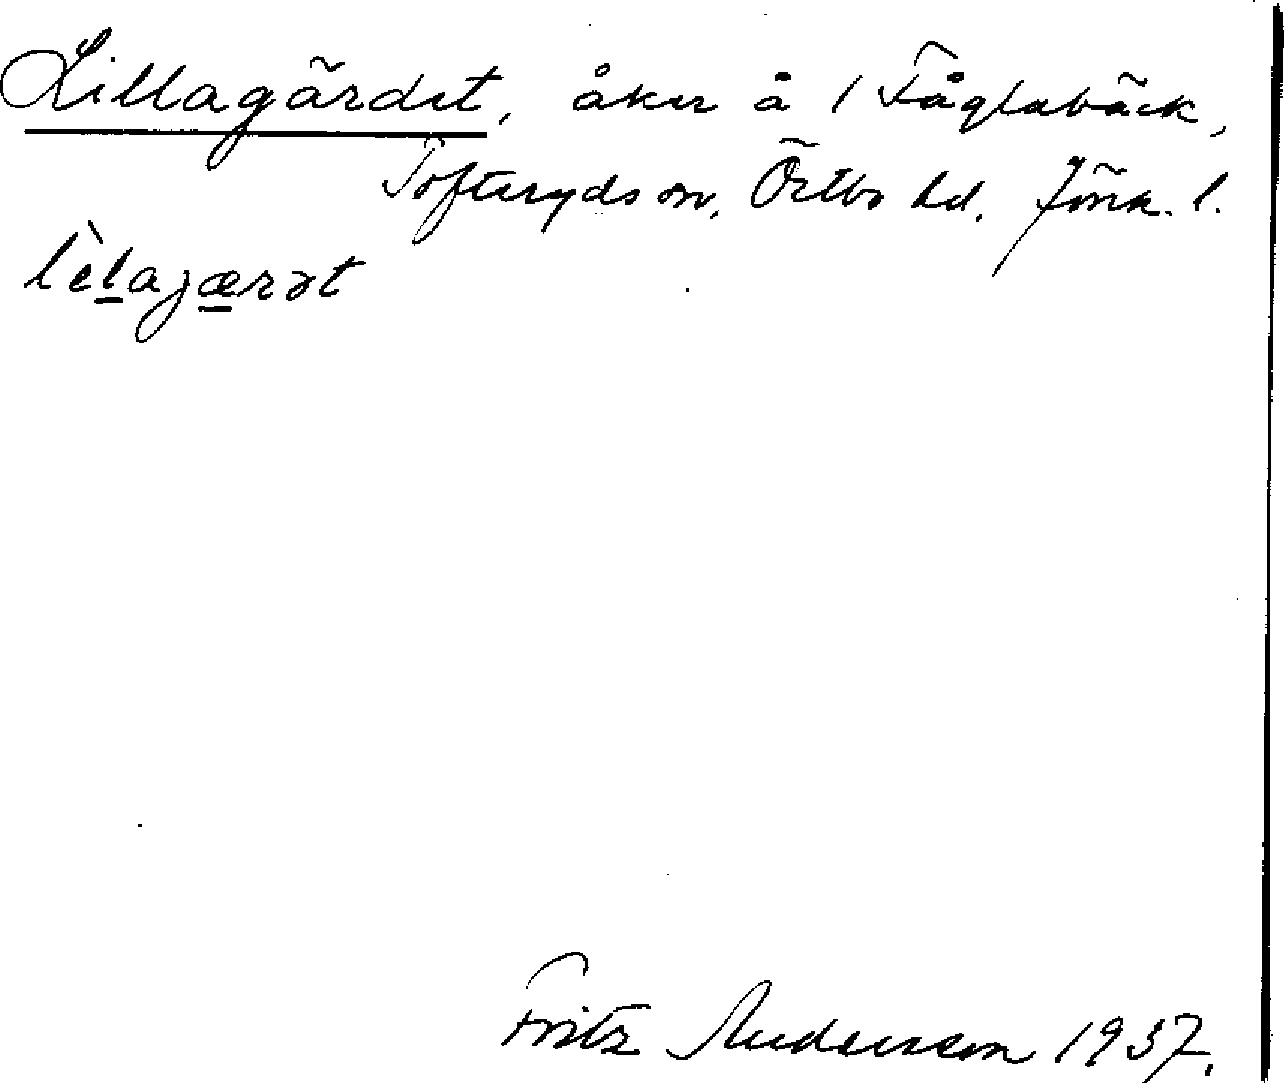 Lillagärdet, åker å 1 Fåglabäck,
Tofteryds sn, Östbo hd, Jönk. l.
lèlajærət
Fritz Andersson 1937.